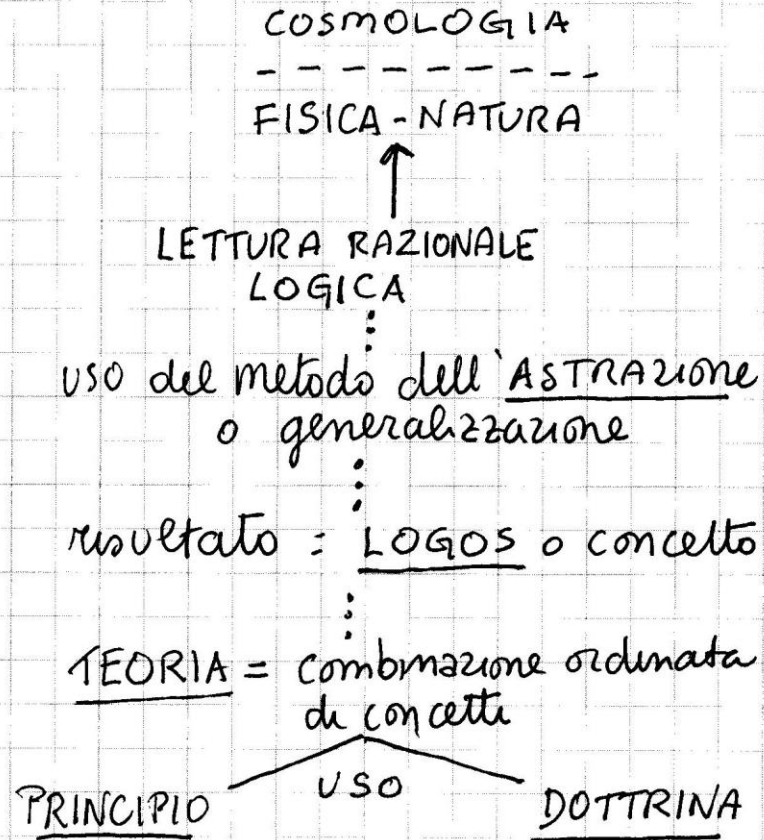 COSMOLOGIA
FISICA - NATURA
LETTURA RAZIONALE
LOGICA
USO del metodo dell'ASTRAZIONE
o generalizzazione
risultato : LOGOS o concetto
TEORIA = combinazione ordinata
di concetti
USO
PRINCIPIO DOTTRINA